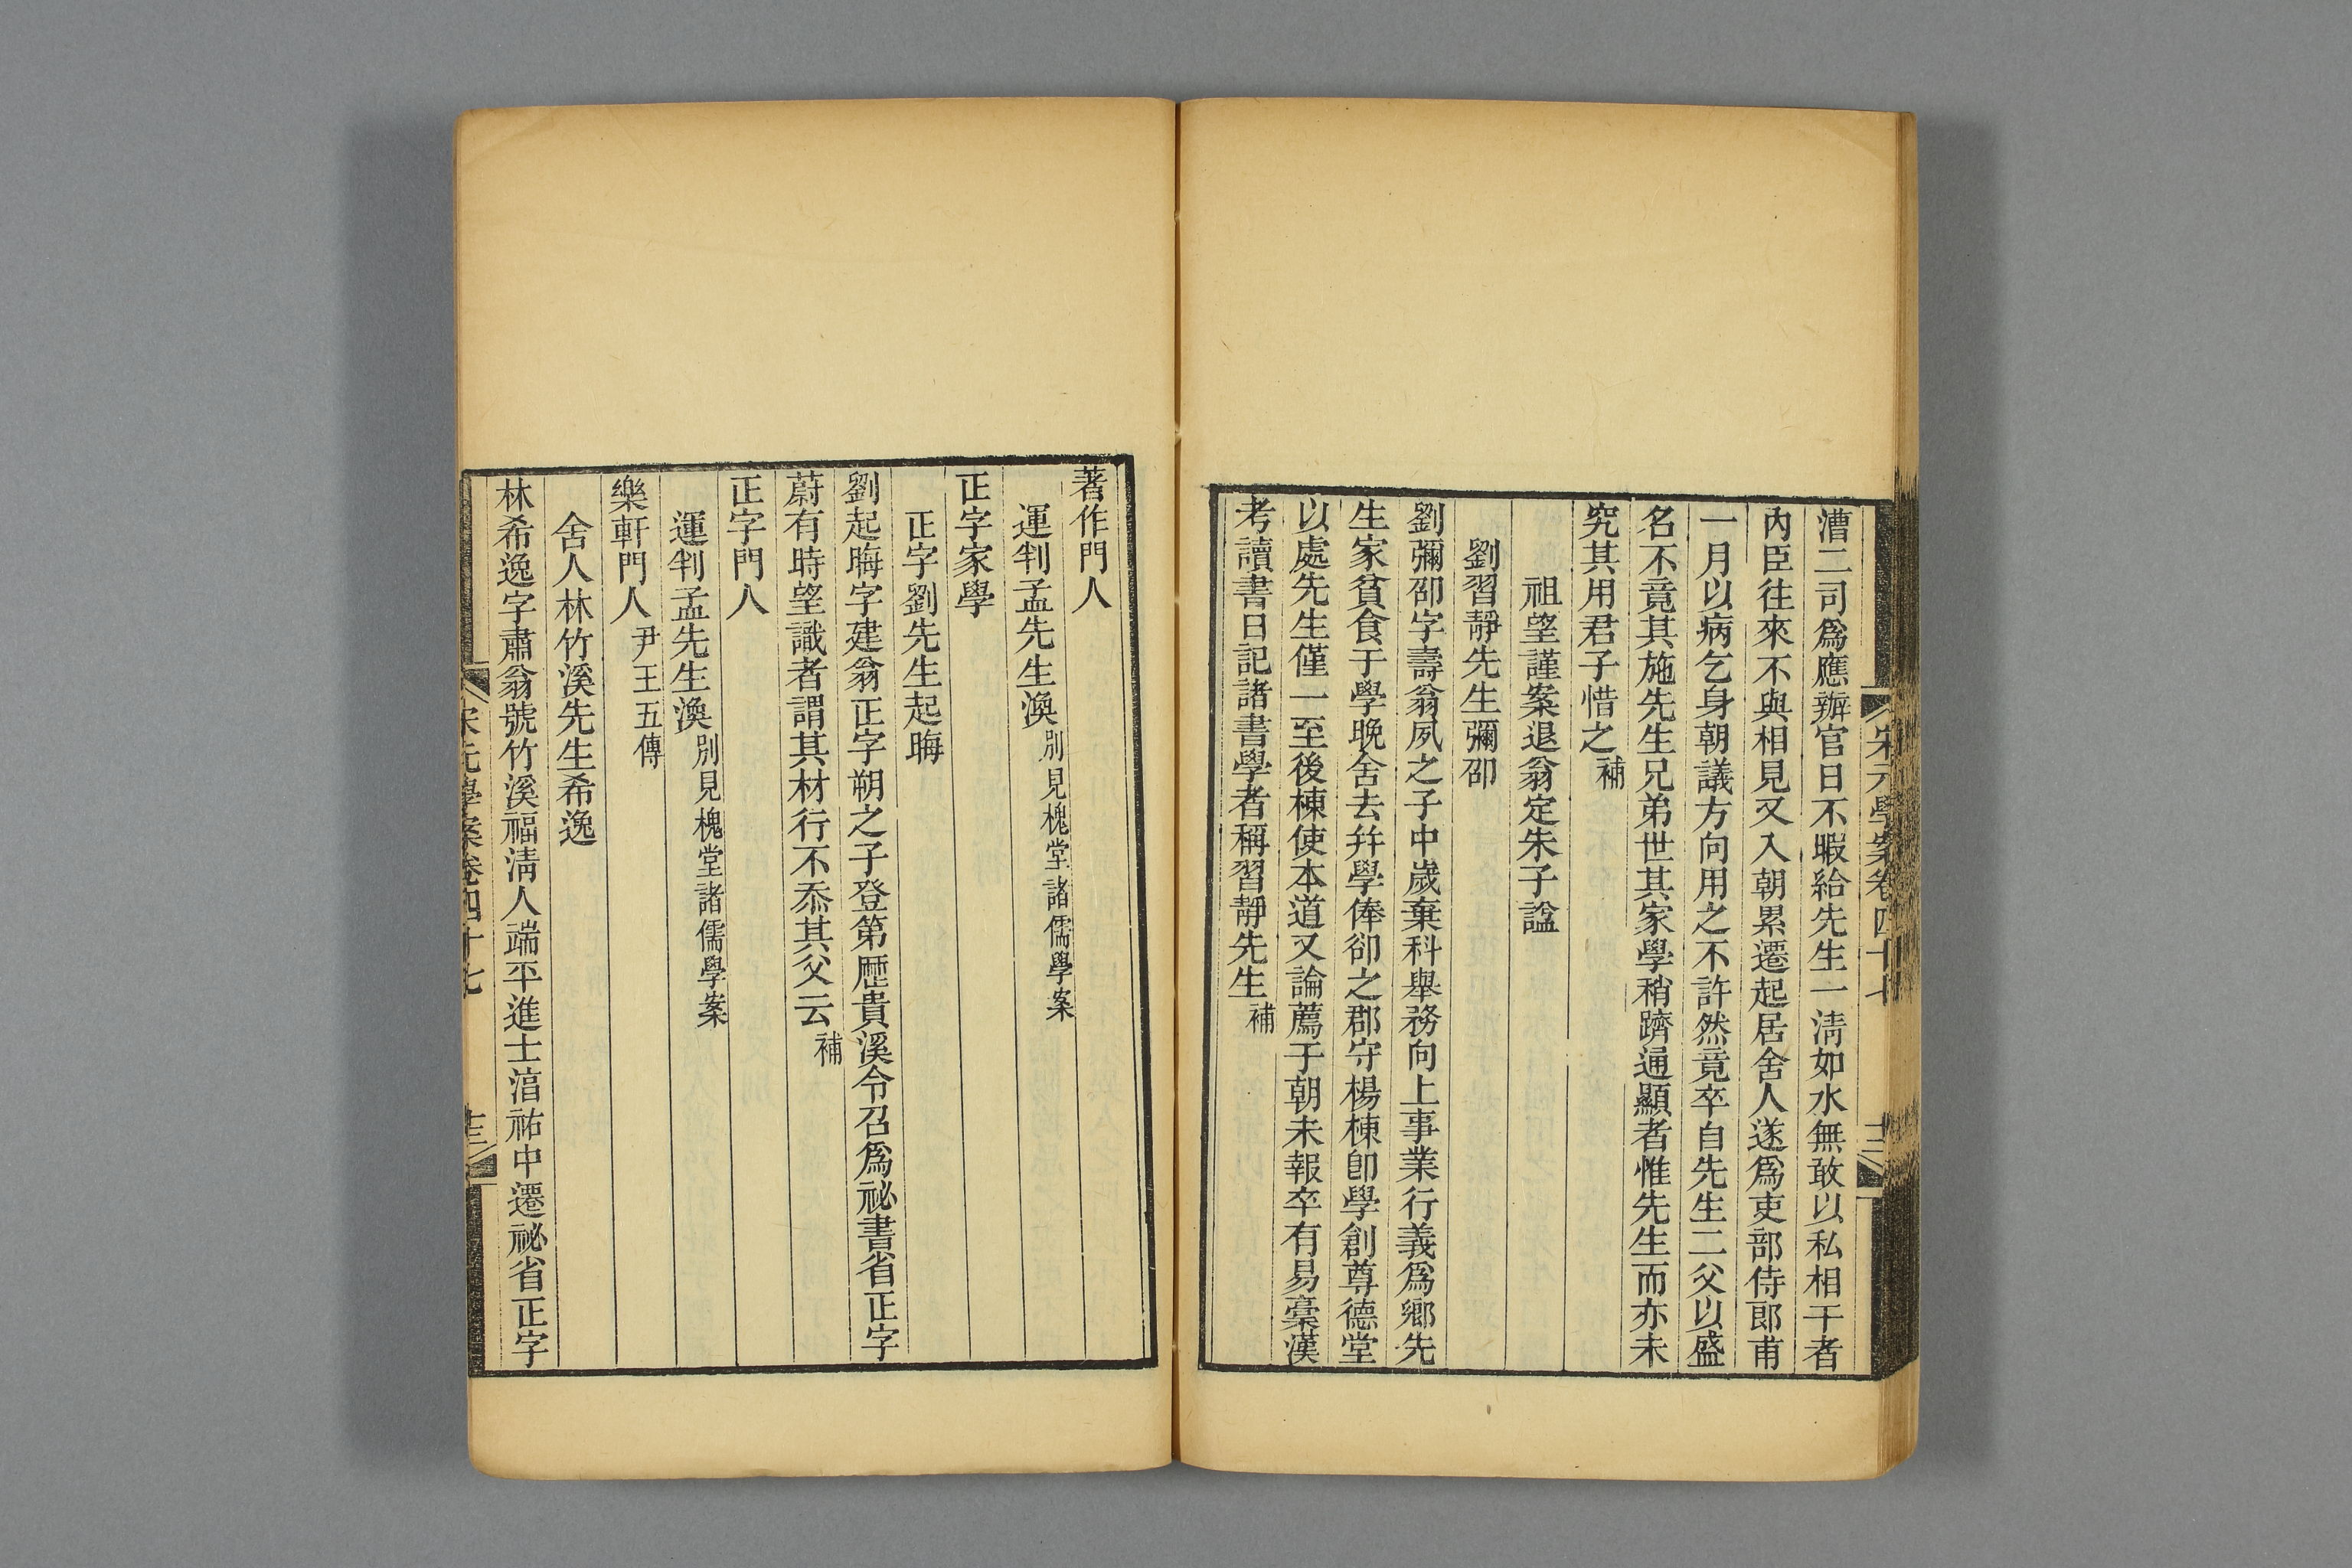 宋元學案卷四十七
十二
漕二司爲應辦官日不暇給先生一淸如水無敢以私相干者
內臣往來不與相見又入朝累遷起居舍人遂爲吏部侍郞甫
一月以病乞身朝議方向用之不許然竟卒自先生二父以盛
名不竟其施先生兄弟世其家學稍躋通顯者惟先生而亦未
究其用君子惜之補
祖望謹案退翁定朱子諡
劉習靜先生彌卲
劉彌卲字壽翁夙之子中歲棄科舉務向上事業行義爲鄕先
生家貧食于學晚舍去幷學俸卻之郡守楊棟卽學創尊德堂
以處先生僅一至後棟使本道又論薦于朝未報卒有易稾漢
考讀書日記諸書學者稱習靜先生補
著作門人
運判孟先生渙別見槐堂諸儒學案
正字家學
正字劉先生起晦
劉起晦字建翁正字朔之子登第歷貴溪令召爲祕書省正字
蔚有時望識者謂其材行不忝其父云補
正字門人
運判孟先生渙別見槐堂諸儒學案
樂軒門人尹王五傳
舍人林竹溪先生希逸
林希逸字肅翁號竹溪福淸人端平進士淳祐中遷祕省正字
宋元學案卷四十七
十三